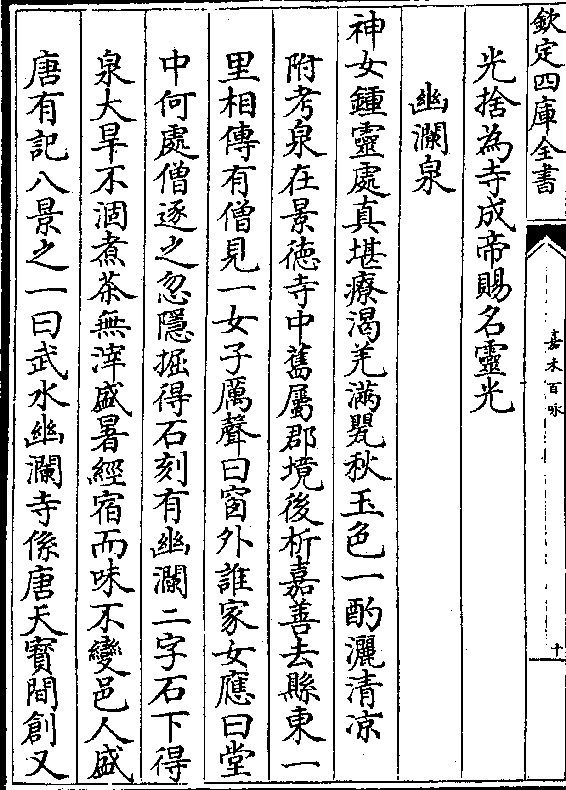 欽定四庫全書
嘉禾百咏
十
光捨為寺成帝賜名靈光
幽瀾泉
神女鍾靈處真堪療渴羌滿甖秋玉色一酌灑清凉
附考泉在景德寺中舊屬郡境後析嘉善去縣東一
里相傳有僧見一女子厲聲曰窗外誰家女應曰堂
中何處僧逐之忽隱掘得石刻有幽瀾二字石下得
泉大旱不涸煮茶無滓盛暑經宿而味不變邑人盛
唐有記八景之一曰武水幽瀾寺係唐天寳間創又